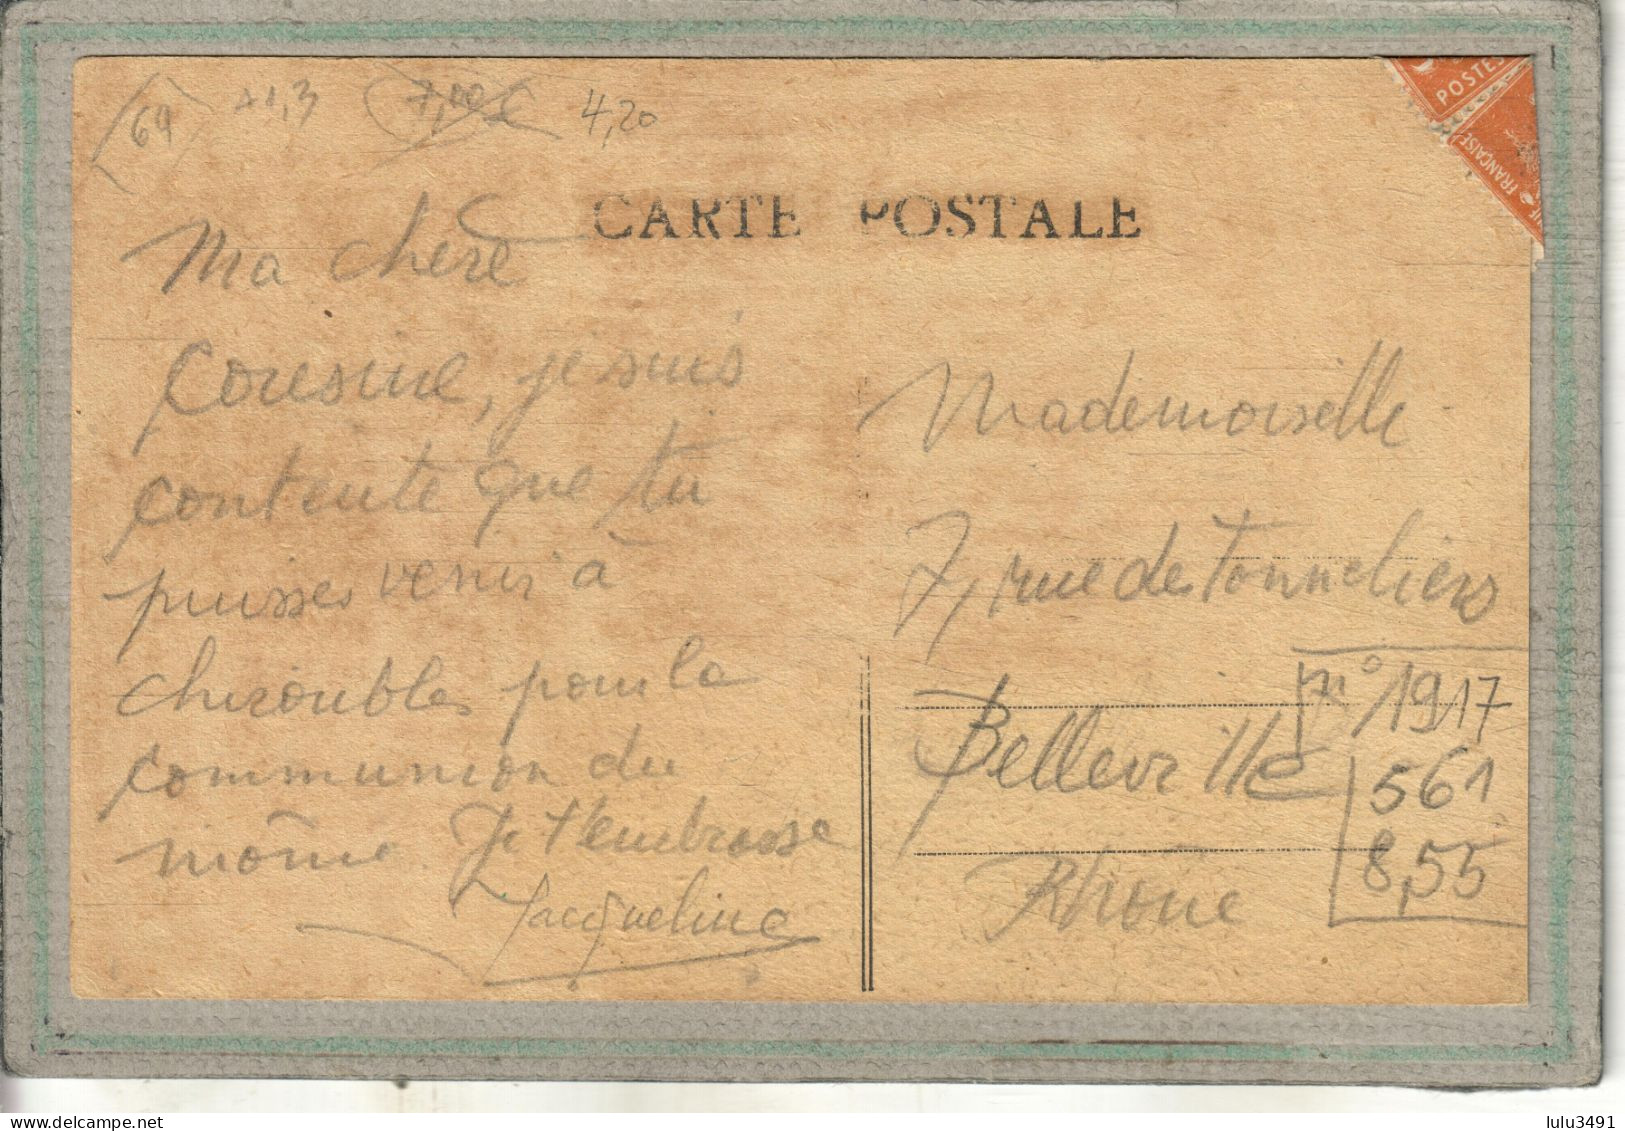 69
7,00€
4,20
POSTES
FRANÇAISE
CARTE POSTALE
Ma chère
Cousine, je suis
contente que tu
puisses venir à
chiroubles pour la
communion du
môme Je t'embrasse
Jacqueline
Mademoiselle
7, rue de Tonneliers
Belleville
Rhône
n° 1917
561
8,55
lulu3491